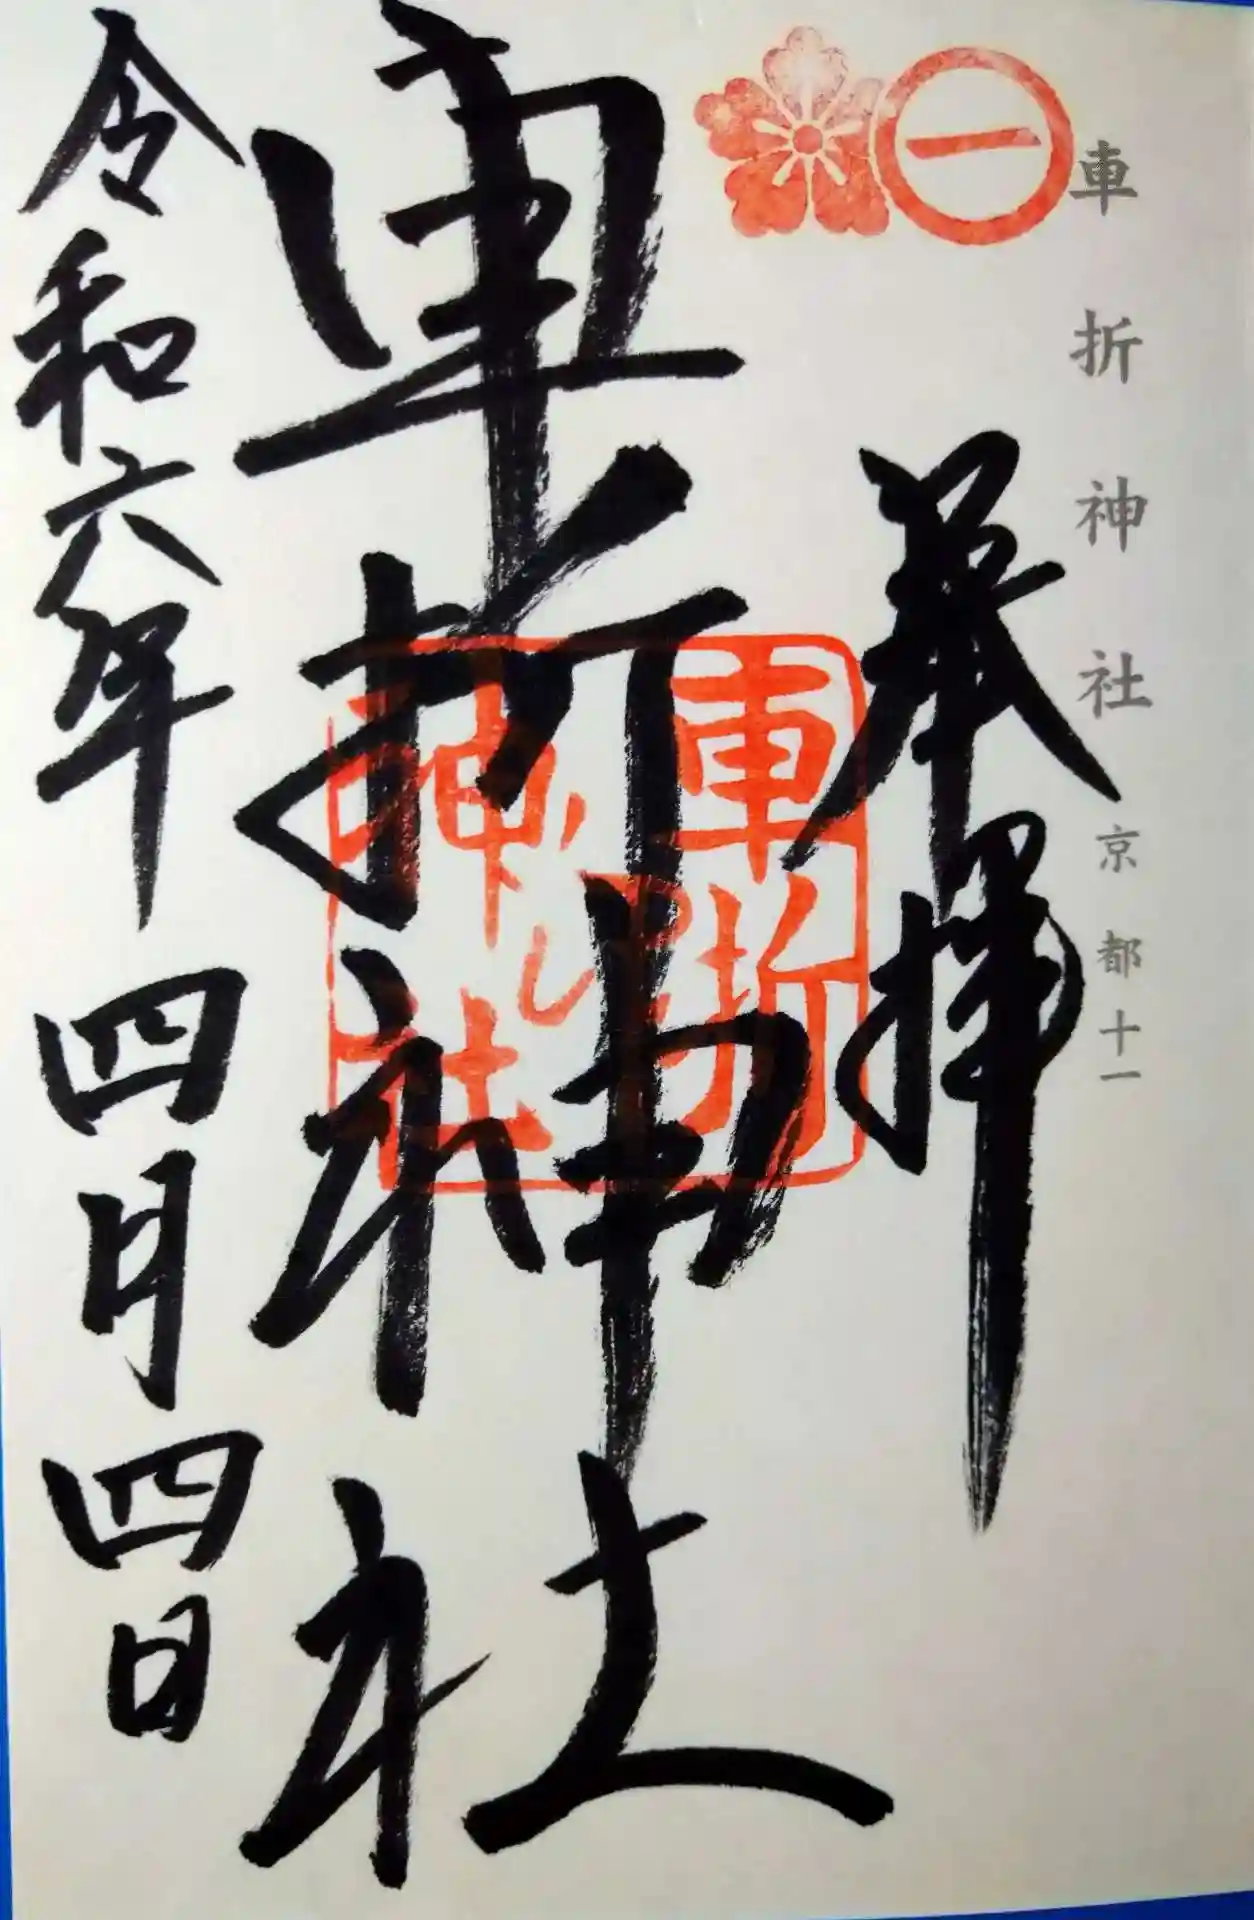 車折神社 京都十一
一
奉拝
車折神社
車折
神社
令和六年四月四日